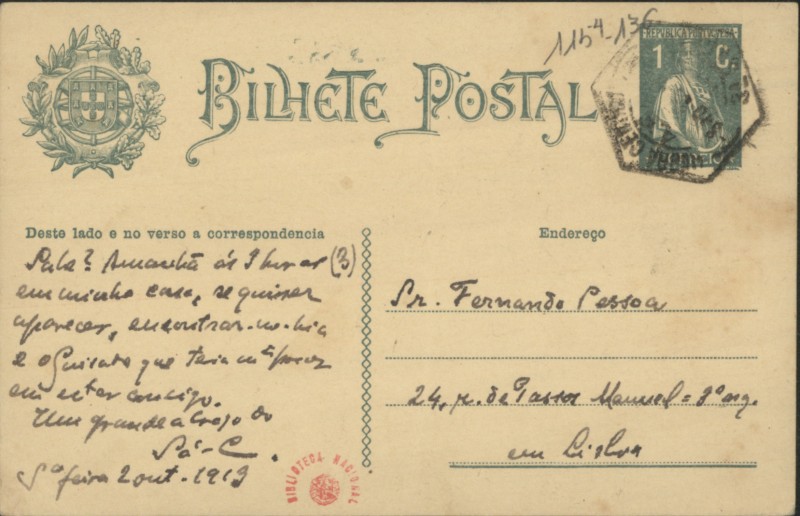 1154-136
BILHETE POSTAL
REPUBLICA PORTUGUESA
1 C.
CENTRAL
Deste lado e no verso a correspondencia
Amanhã ás horas (3)
em minha casa, se quiser
aparecer, encontrar-me-hia
e o Guisado que teria mto prazer
em estar consigo.
Um grande abraço do
Sá-C.
5ª feira 2 out. 1913
BIBLIOTECA NACIONAL
Endereço
Sr. Fernando Pessoa
24, r. de Passos Manuel = 3º esq.
em Lisboa